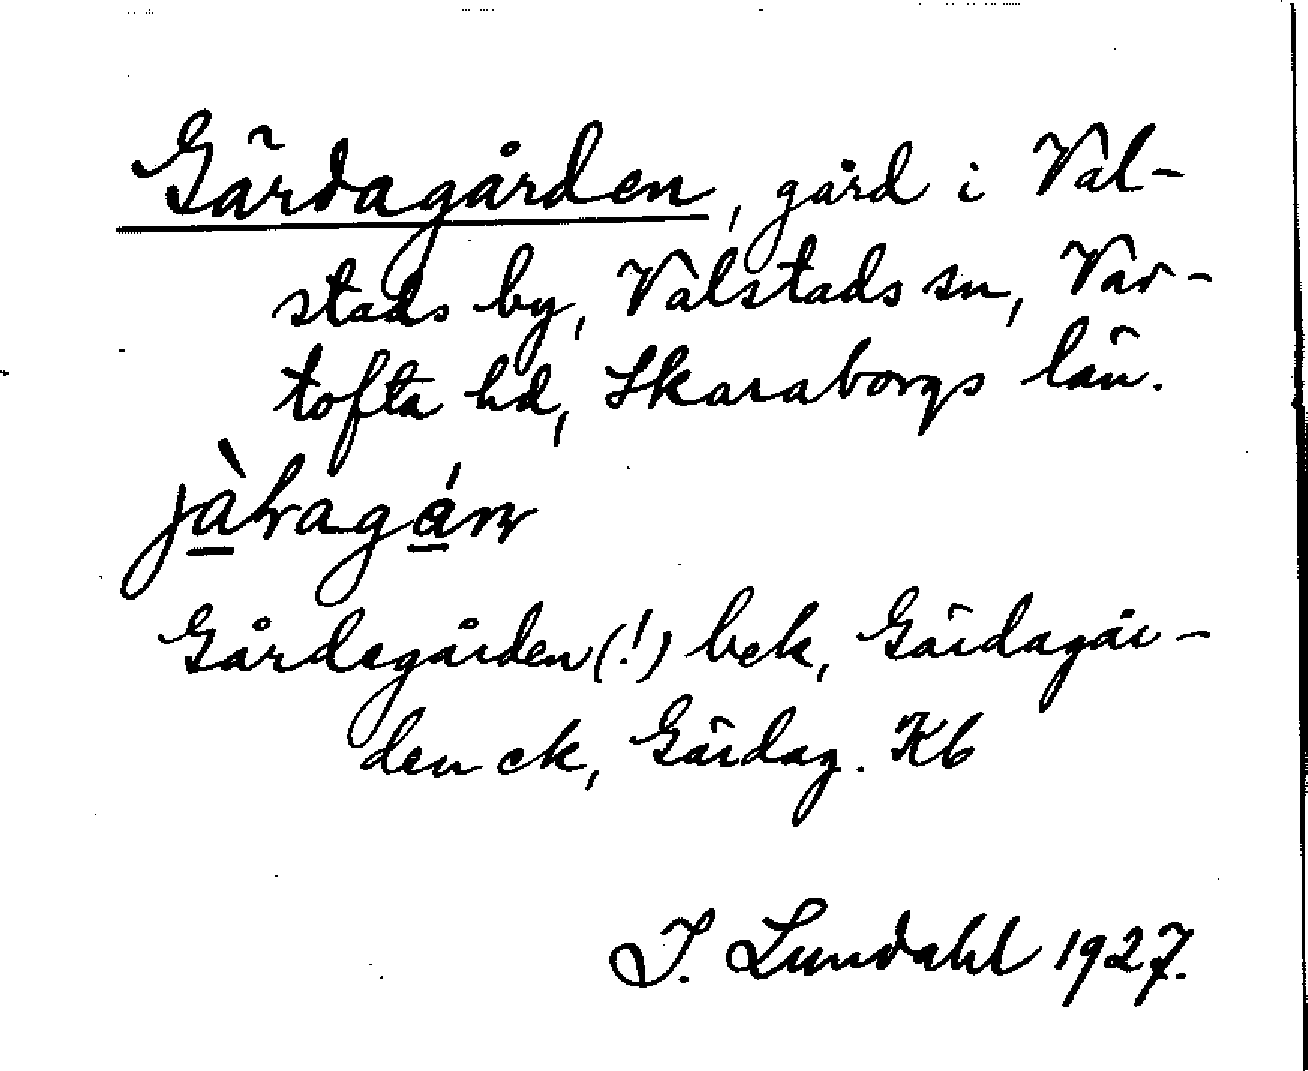 Gärdagården, gård i Val-
stads by, Valstads sn, Var-
tofta hd, Skaraborgs län.
Gårdagården (!) bek, Gärdagår-
den ek, Gärdag. Kb
I. Lundahl 1927.